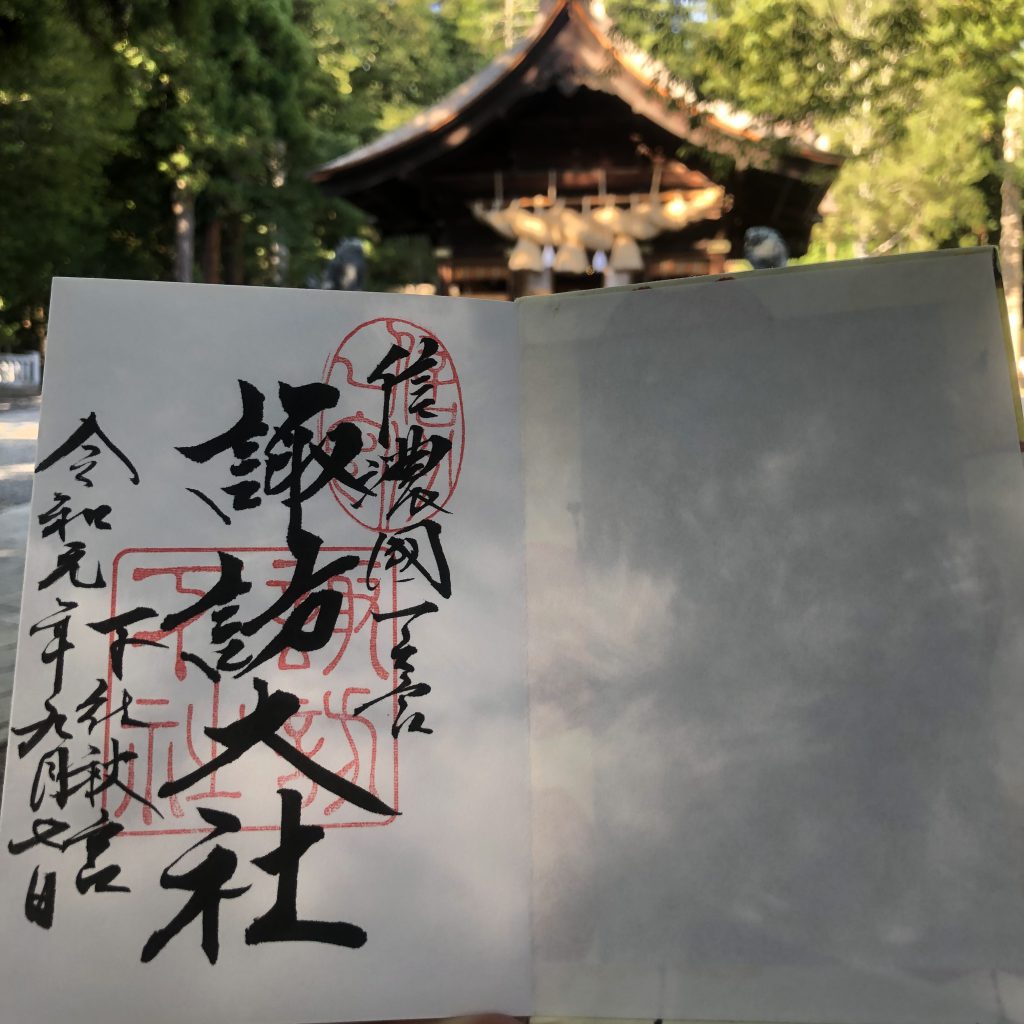 信濃國一之宮
諏訪大社
下社秋宮
令和元年九月七日
諏訪
下社